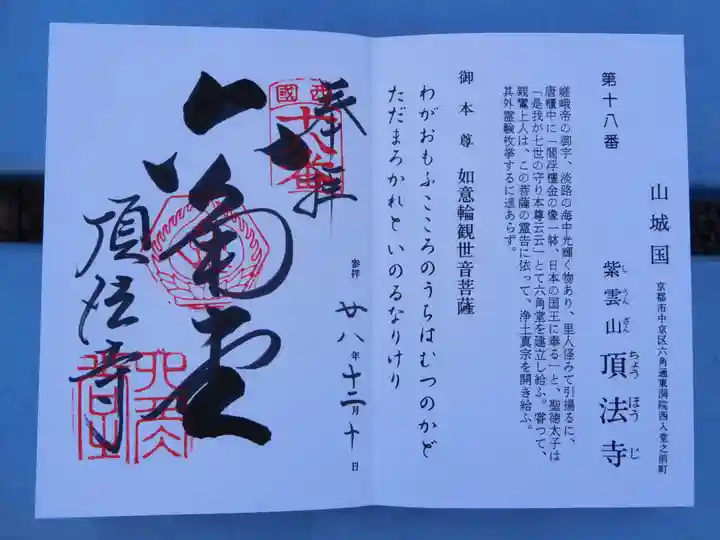 第十八番
山城国
紫雲山 頂法寺
しうんざん ちょうほうじ
京都市中京区六角通東洞院西入堂之前町
嵯峨帝の御宇、淡路の海中光輝く物あり、里人怪みて引揚るに、
唐櫃中に「閻浮檀金の像一躰、日本の国王に奉る」と、聖徳太子は
「是我が七世の守り本尊云云」とて六角堂を建立し給ふ。嘗つて、
親鸞上人は、この菩薩の霊告に依って、浄土真宗を開き給ふ。
其外霊験枚挙するに遑あらず。
御本尊 如意輪観世音菩薩
わがおもふこころのうちはむつのかど
ただまろかれといのるなりけり
奉拝
西國
十八番
六角堂
頂法寺
参拝 廿八年十二月十日